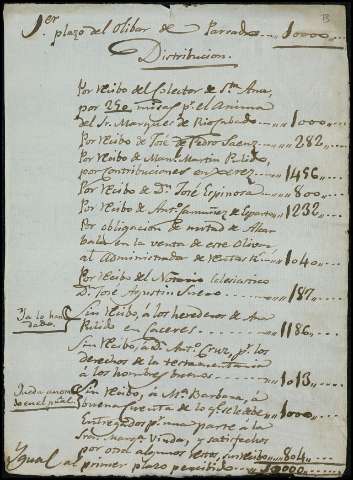 1.er plazo del Olibar de Parrado 10000
Distribucion.
Por recibo del Colector de Sta. Ana,
por 250 misas pr. el Anima
del Sr. Marques de Rio 1000
Por recibo de José de Pedro Saenz 282
Por recibo de Manl. Martin Pulido,
por contribuciones en Xerez 1456
Por recibo de Dn. José Espinosa 800
Por recibo de Anto. de 1232
Por obligacion de mitad de Alca
bala en la venta de este Olivar
al Administrador de Rentas Rs. 1040
Por recibo del Notario eclesiastico
Dn. José Agustin 187
Ya lo han
dado.
Sin recibo, á los herederos de Ana
Pulido en Caceres 1186
Sin recibo, á Dn. Anto. Cruz, pr. los
derechos de la testamentaria
á los hombres buenos 1013
Sin recibo, á Ma. Barbara, á
buena cuenta de lo qe. se le debe 1000
Entregados pr. una parte á la
Sra. Marqa. Viuda, y satisfechos
por otra algunos restos, sin recibo 804
Ygual al primer plazo percibido 10000